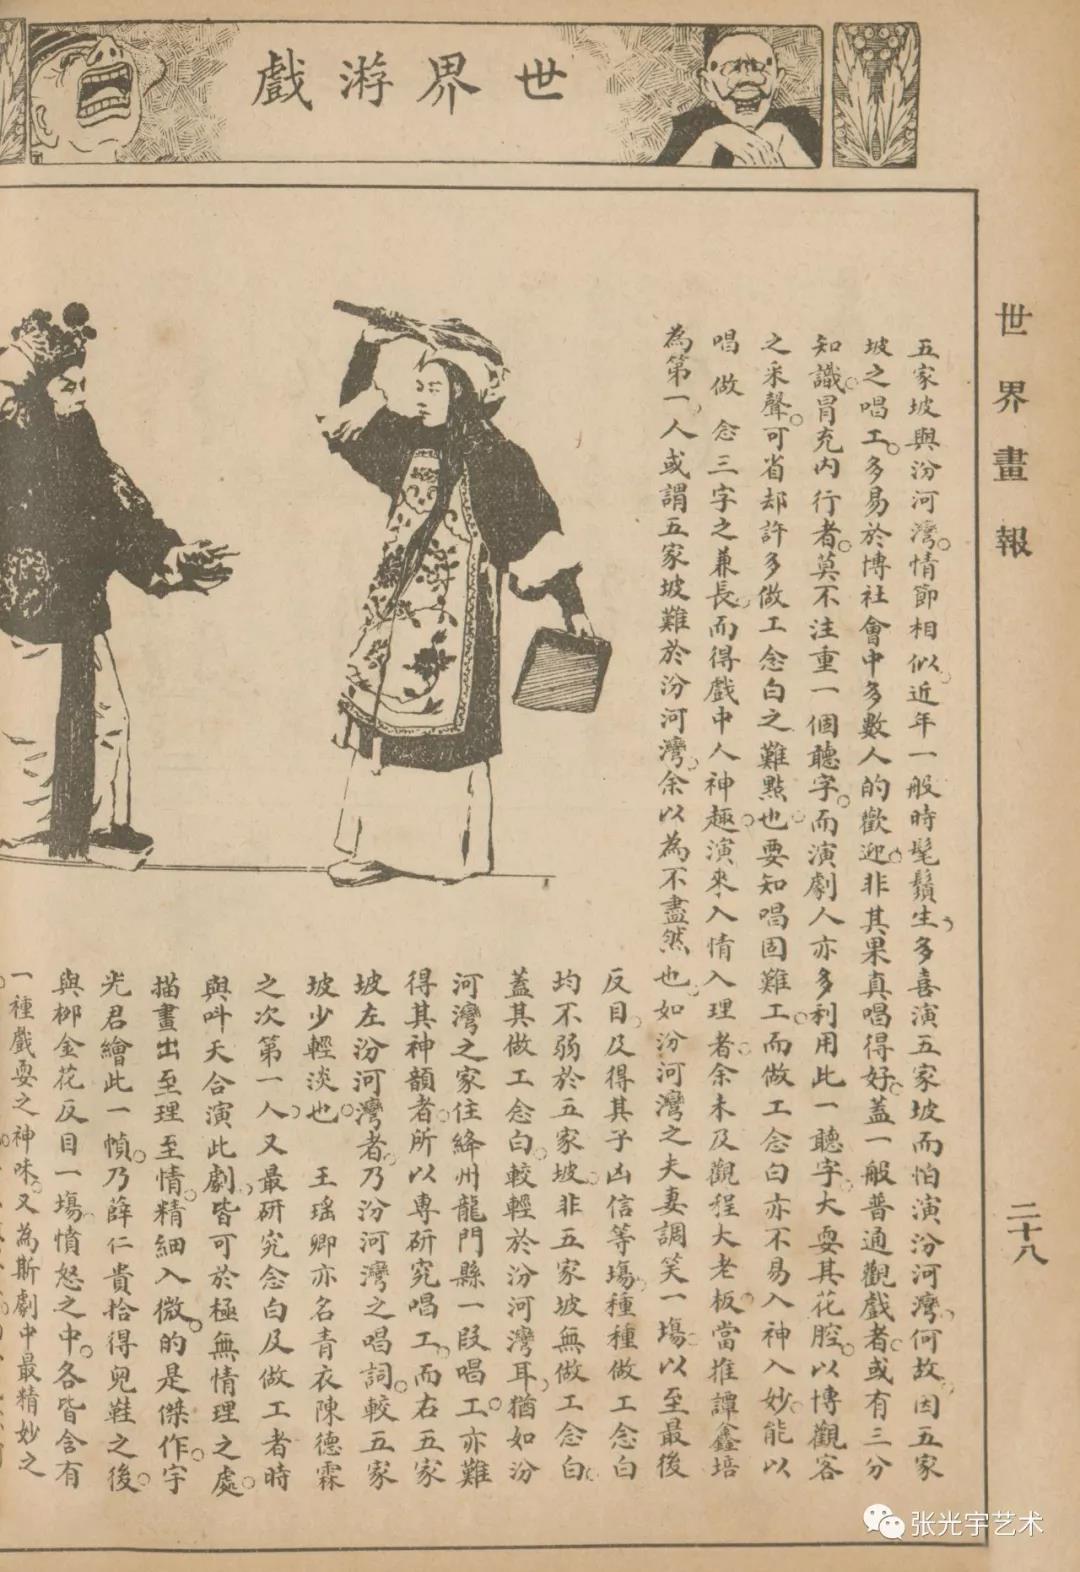 世界游戲
世界畫報
二十八
五家坡與汾河灣。情節相似。近年一般時髦鬚生。多喜演五家坡而怕演汾河灣。何故。因五家
坡之唱工。多易於博社會中多數人的歡迎。非其果真唱得好。蓋一般普通觀戲者。或有三分
知識。冒充內行者。莫不注重一個聽字。而演劇人亦多利用此一聽字。大耍其花腔。以博觀客
之采聲。可省却許多做工念白之難點也。要知唱固難工。而做工念白亦不易入神入妙。能以
唱做念三字之兼長。而得戲中人神趣。演來入情入理者。余未及觀程大老板。當推譚鑫培
為第一人。或謂五家坡難於汾河灣。余以為不盡然也。如汾河灣之夫妻調笑一場。以至最後
反目。及得其子凶信等場。種種做工念白
均不弱於五家坡。非五家坡無做工念白。
蓋其做工念白。較輕於汾河灣耳。猶如汾
河灣之家住絳州龍門縣一段唱工。亦難
得其神韻者。所以專研究唱工。而右五家
坡左汾河灣者。乃汾河灣之唱詞。較五家
坡少輕淡也。 王瑤卿亦名青衣陳德霖
之次第一人。又最研究念白及做工者。時
與叫天合演此劇。皆可於極無情理之處。
描畫出至理至情。精細入微。的是傑作。宇
光君繪此一幀。乃薛仁貴拾得兒鞋之後。
與柳金花反目一場。憤怒之中。各皆含有
一種戲耍之神味。又為斯劇中最精妙之
张光宇艺术